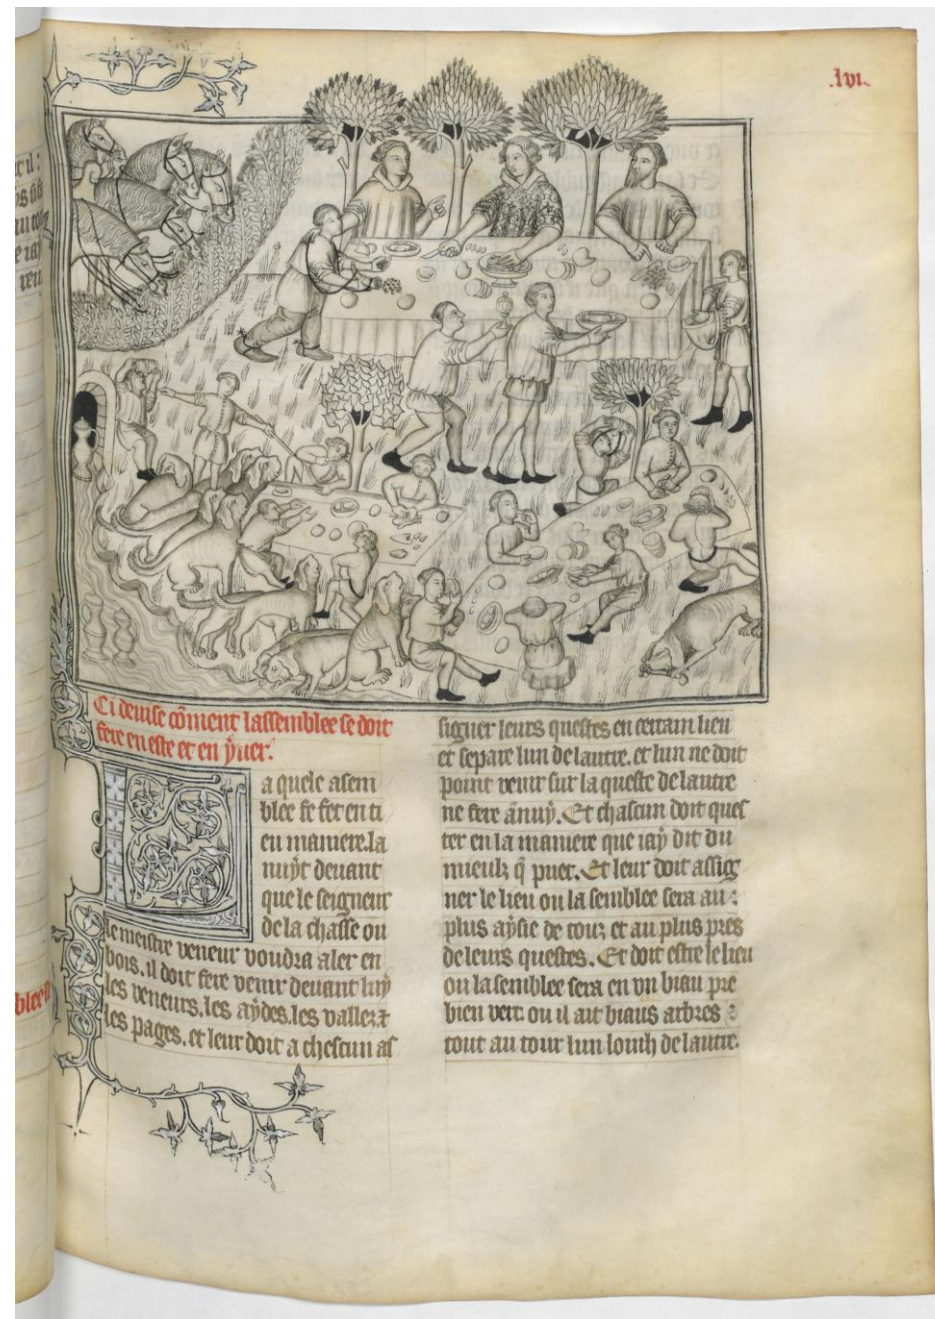 .lvi.
Ci devise cōment lassemblee se doit
fere en este et en yver.
a quele asem
blee se fet en ti
eu maniere. la
nuyt devant
que le seigneur
de la chasse ou
le meistre veneur voudra aler en
bois, il doit fere venir devant luy
les veneurs, les aydes, les vallez et
les pages, et leur doit a chescun as
signer leurs questes en certain lieu
et separe lun de lautre. et lun ne doit
point venir sur la queste de lautre
ne fere ānuy. Et chascun doit ques
ter en la maniere que iay dit du
mieulz q̄ puet. Et leur doit assig
ner le lieu ou la semblee sera au
plus aysie de touz et au plus pres
de leurs questes. Et doit estre le lieu
ou la semblee sera en un biau pre
bien vert ou il ait biaus arbres
tout au tour lun loinh de lautre.